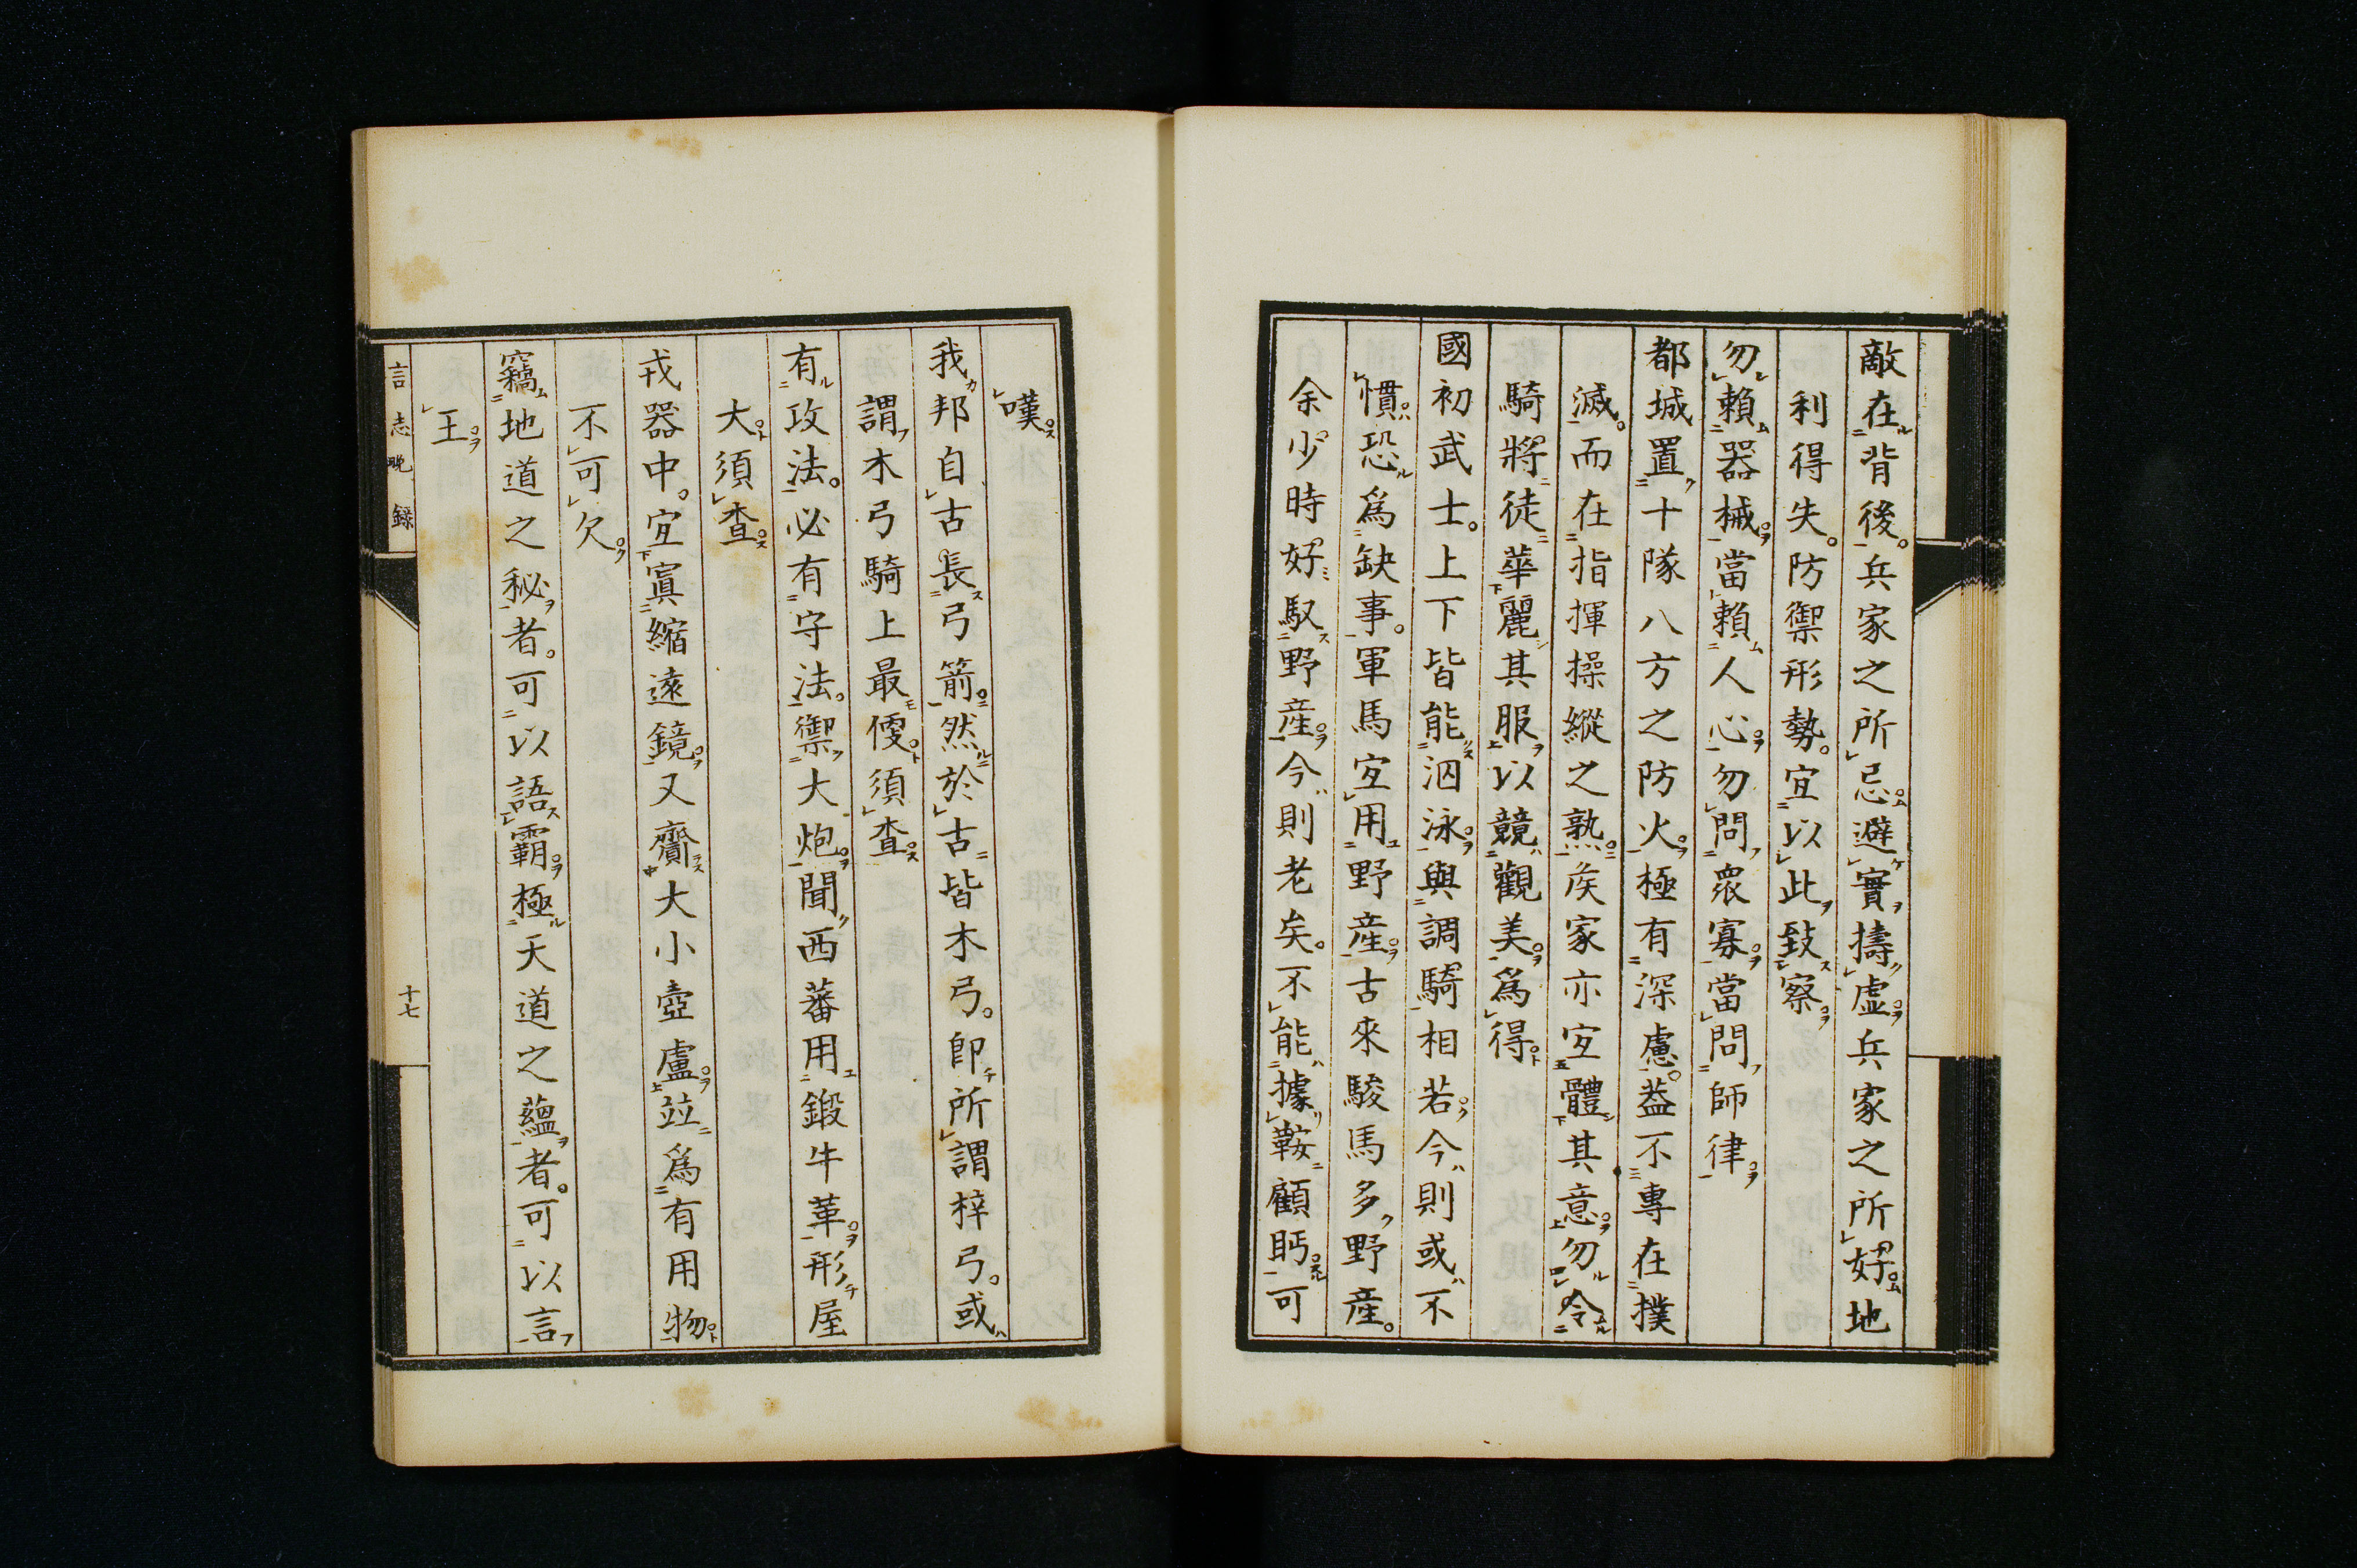 敵在背後。兵家之所忌避實擣虛兵家之所好地
利得失。防禦形勢。宜以此致察
勿賴器械當賴人心勿問衆寡當問師律
都城置十隊八方之防火極有深慮。葢不專在撲
滅而在指揮操縱之熟矦家亦宜體其意勿令
騎將徒華麗其服以競觀美爲得
國初武士。上下皆能泅泳與調騎相若今則或不
慣恐爲缺事。軍馬宜用野產古來駿馬多野產。
余少時好馭野產今則老矣。不能據鞍顧眄可
嘆
我邦自古長弓箭然於古皆木弓。卽所謂梓弓。或
謂木弓騎上最便須查
有攻法。必有守法。禦大炮聞西蕃用鍛牛革形屋
大須查
戎器中。宜寘縮遠鏡又齎大小壺盧竝爲有用物
不可欠
竊地道之秘者。可以語霸極天道之蘊者。可以言
王
言志晩錄
十七